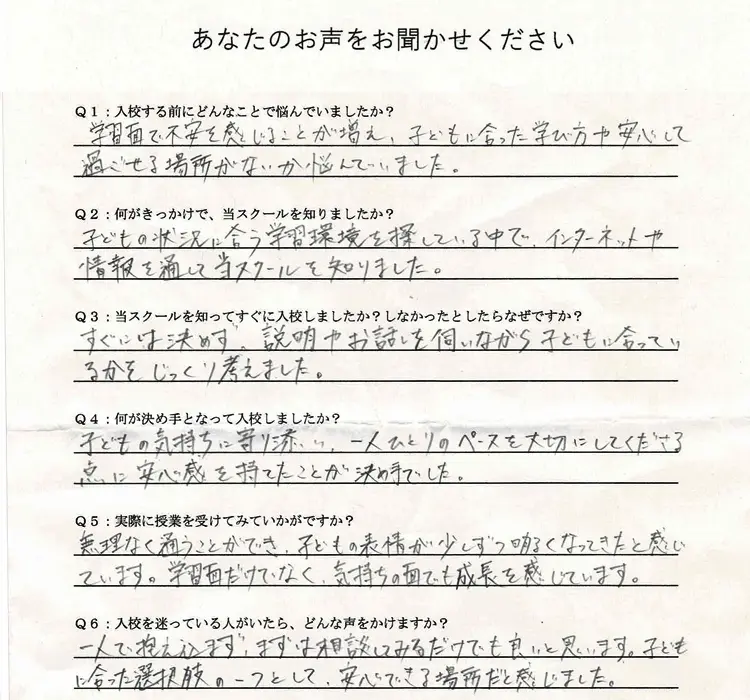 あなたのお声をお聞かせください
Q1：入校する前にどんなことで悩んでいましたか？
学習面で不安を感じることが増え、子どもに合った学び方や安心して
過ごせる場所がないか悩んでいました。
Q2：何がきっかけで、当スクールを知りましたか？
子どもの状況に合う学習環境を探している中で、インターネットや
情報を通して当スクールを知りました。
Q3：当スクールを知ってすぐに入校しましたか？しなかったとしたらなぜですか？
すぐには決めず、説明やお話しを伺いながら子どもに合ってい
るかをじっくり考えました。
Q4：何が決め手となって入校しましたか？
子どもの気持ちに寄り添い、一人ひとりのペースを大切にしてくださる
点に安心感を持てたことが決め手でした。
Q5：実際に授業を受けてみていかがですか？
無理なく通うことができ、子どもの表情が少しずつ明るくなってきたと感じ
ています。学習面だけでなく、気持ちの面でも成長を感じています。
Q6：入校を迷っている人がいたら、どんな声をかけますか？
一人で抱え込まず、まずは相談してみるだけでも良いと思います。子ども
に合った選択肢の一つとして、安心できる場所だと感じました。